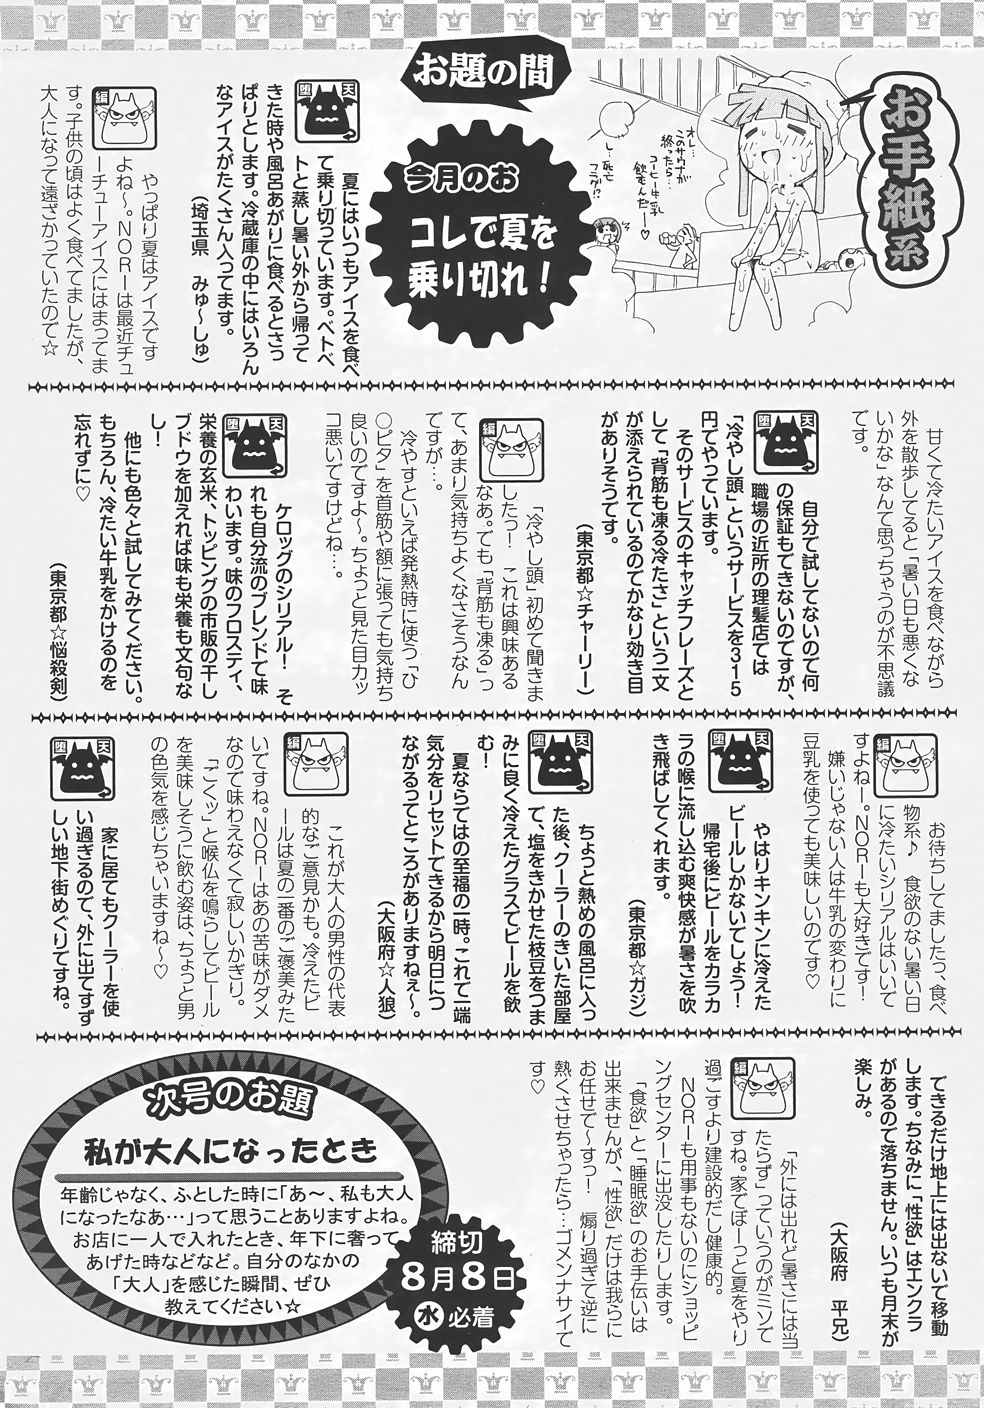 お手紙系
オレ…
このサウナが
終ったら…
コーヒー牛乳
飲むんだ…♡
し…死亡
フラグ!?
お題の間
今月のお
コレで夏を
乗り切れ！
堕天
夏にはいつもアイスを食べ
て乗り切っています。ベトベ
トと蒸し暑い外から帰って
きた時や風呂あがりに食べるとさっ
ぱりとします。冷蔵庫の中にはいろん
なアイスがたくさん入ってます。
（埼玉県　みゅ～しゅ）
編
やっぱり夏はアイスです
よね～。NORIは最近チュ
ーチューアイスにはまってま
す。子供の頃はよく食べてましたが、
大人になって遠ざかっていたので☆
甘くて冷たいアイスを食べながら
外を散歩してると「暑い日も悪くな
いかな」なんて思っちゃうのが不思議
です。
堕天
自分で試してないので何
の保証もできないのですが、
職場の近所の理髪店では
「冷やし頭」というサービスを315
円でやっています。
そのサービスのキャッチフレーズと
して「背筋も凍る冷たさ」という一文
が添えられているのでかなり効き目
がありそうです。
（東京都☆チャーリー）
編
「冷やし頭」初めて聞きま
したっ！　これは興味ある
なあ。でも「背筋も凍る」っ
て、あまり気持ちよくなさそうなん
ですが…。
冷やすといえば発熱時に使う「ひ
○ピタ」を首筋や額に張っても気持ち
良いのですよ～。ちょっと見た目カッ
コ悪いですけどね…。
堕天
ケロッグのシリアル！　そ
れも自分流のブレンドで味
わいます。味のフロスティ、
栄養の玄米、トッピングの市販の干し
ブドウを加えれば味も栄養も文句な
し！
他にも色々と試してみてください。
もちろん、冷たい牛乳をかけるのを
忘れずに♡
（東京都☆悩殺剣）
編
お待たせしてましたっ、食べ
物系♪　食欲のない暑い日
に冷たいシリアルはいいで
すよねー。NORIも大好きです！
嫌いじゃない人は牛乳の変わりに
豆乳を使っても美味しいのです♡
堕天
やはりキンキンに冷えた
ビールしかないでしょう！
帰宅後にビールをカラカ
ラの喉に流し込む爽快感が暑さを吹
き飛ばしてくれます。
（東京都☆ガジ）
堕天
ちょっと熱めの風呂に入っ
た後、クーラーのきいた部屋
で、塩をきかせた枝豆をつま
みに良く冷えたグラスでビールを飲
む！
夏ならではの至福の一時。これで一端
気分をリセットできるから明日につ
ながるってところがありますねぇ～。
（大阪府☆人狼）
編
これが大人の男性の代表
的なご意見かも。冷えたビ
ールは夏の一番のご褒美みた
いですね。NORIはあの苦味がダメ
なので味わえなくて寂しいかぎり。
「ごくッ」と喉仏を鳴らしてビール
を美味しそうに飲む姿は、ちょっと男
の色気を感じちゃいますね～♡
堕天
家に居てもクーラーを使
い過ぎるので、外に出てすず
しい地下街めぐりですね。
できるだけ地上には出ないで移動
します。ちなみに「性欲」はエンクラ
があるので落ちません。いつも月末が
楽しみ。
（大阪府　平兄）
編
「外には出れど暑さには当
たらず」っていうのがミソで
すね。家でぼーっと夏をやり
過ごすより建設的だし健康的。
NORIも用事もないのにショッピ
ングセンターに出没したりします。
「食欲」と「睡眠欲」のお手伝いは
出来ませんが、「性欲」だけは我らに
お任せで～すっ！　煽り過ぎて逆に
熱くさせちゃったら…ゴメンナサイで
す♡
次号のお題
私が大人になったとき
年齢じゃなく、ふとした時に「あ～、私も大人
になったなあ…」って思うことありますよね。
お店に一人で入れたとき、年下に奢って
あげた時などなど。自分のなかの
「大人」を感じた瞬間、ぜひ
教えてください☆
締切
8月8日
水必着